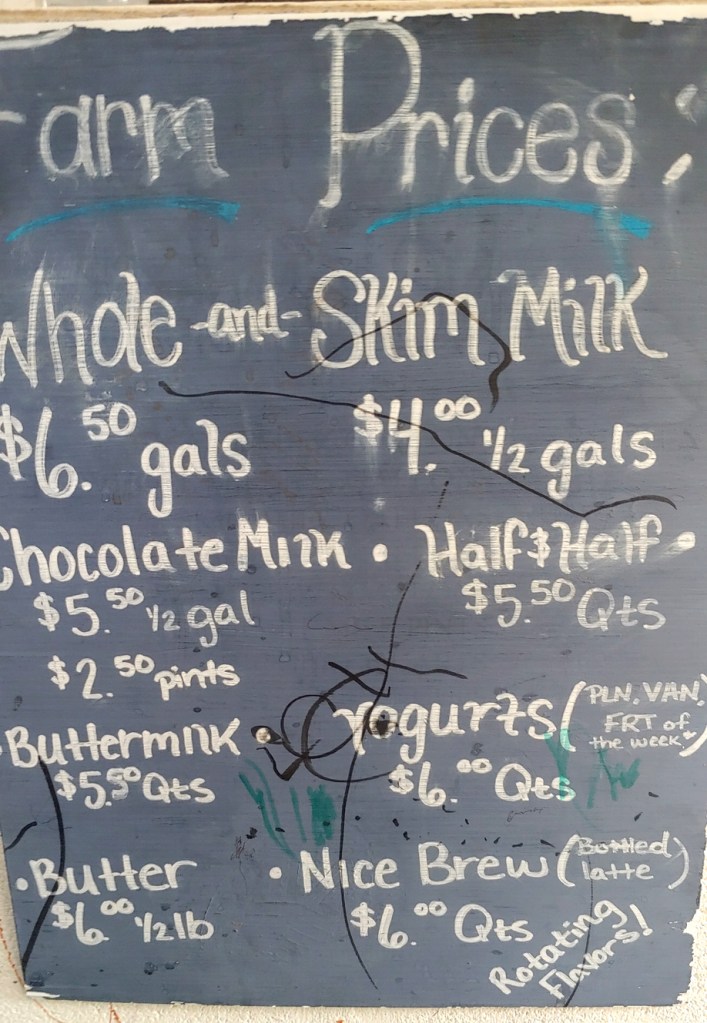 Farm Prices:
Whole -and- Skim Milk
$6.50 gals $4.00 1/2 gals
Chocolate Milk • Half & Half •
$5.50 1/2 gal $5.50 Qts
$2.50 pints
• Buttermilk • Yogurts (PLN. VAN. FRT of the week)
$5.50 Qts $6.00 Qts
• Butter • Nice Brew (Bottled latte)
$6.00 1/2 lb $6.00 Qts
Rotating
Flavors!